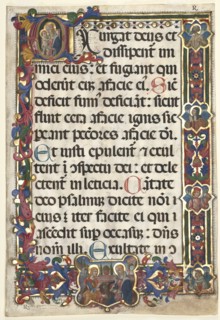 Exurgat deus et
dissipent' in
imici eius: et fugiant qui
oderunt eū a facie ei'. Sic'
deficit fum' deficiāt: sicut
fluit cera a facie ignis sic
peant pctōres a facie dī.
Et iusti epulent' et exul
tent ī ospectu dei: et dele
ctent' in leticia. Cātate
deo psalmū dicite noī
eius: iter facite ei qui
ascendit sup occasuz: dn̄s
nom̄ illi. Exultate in